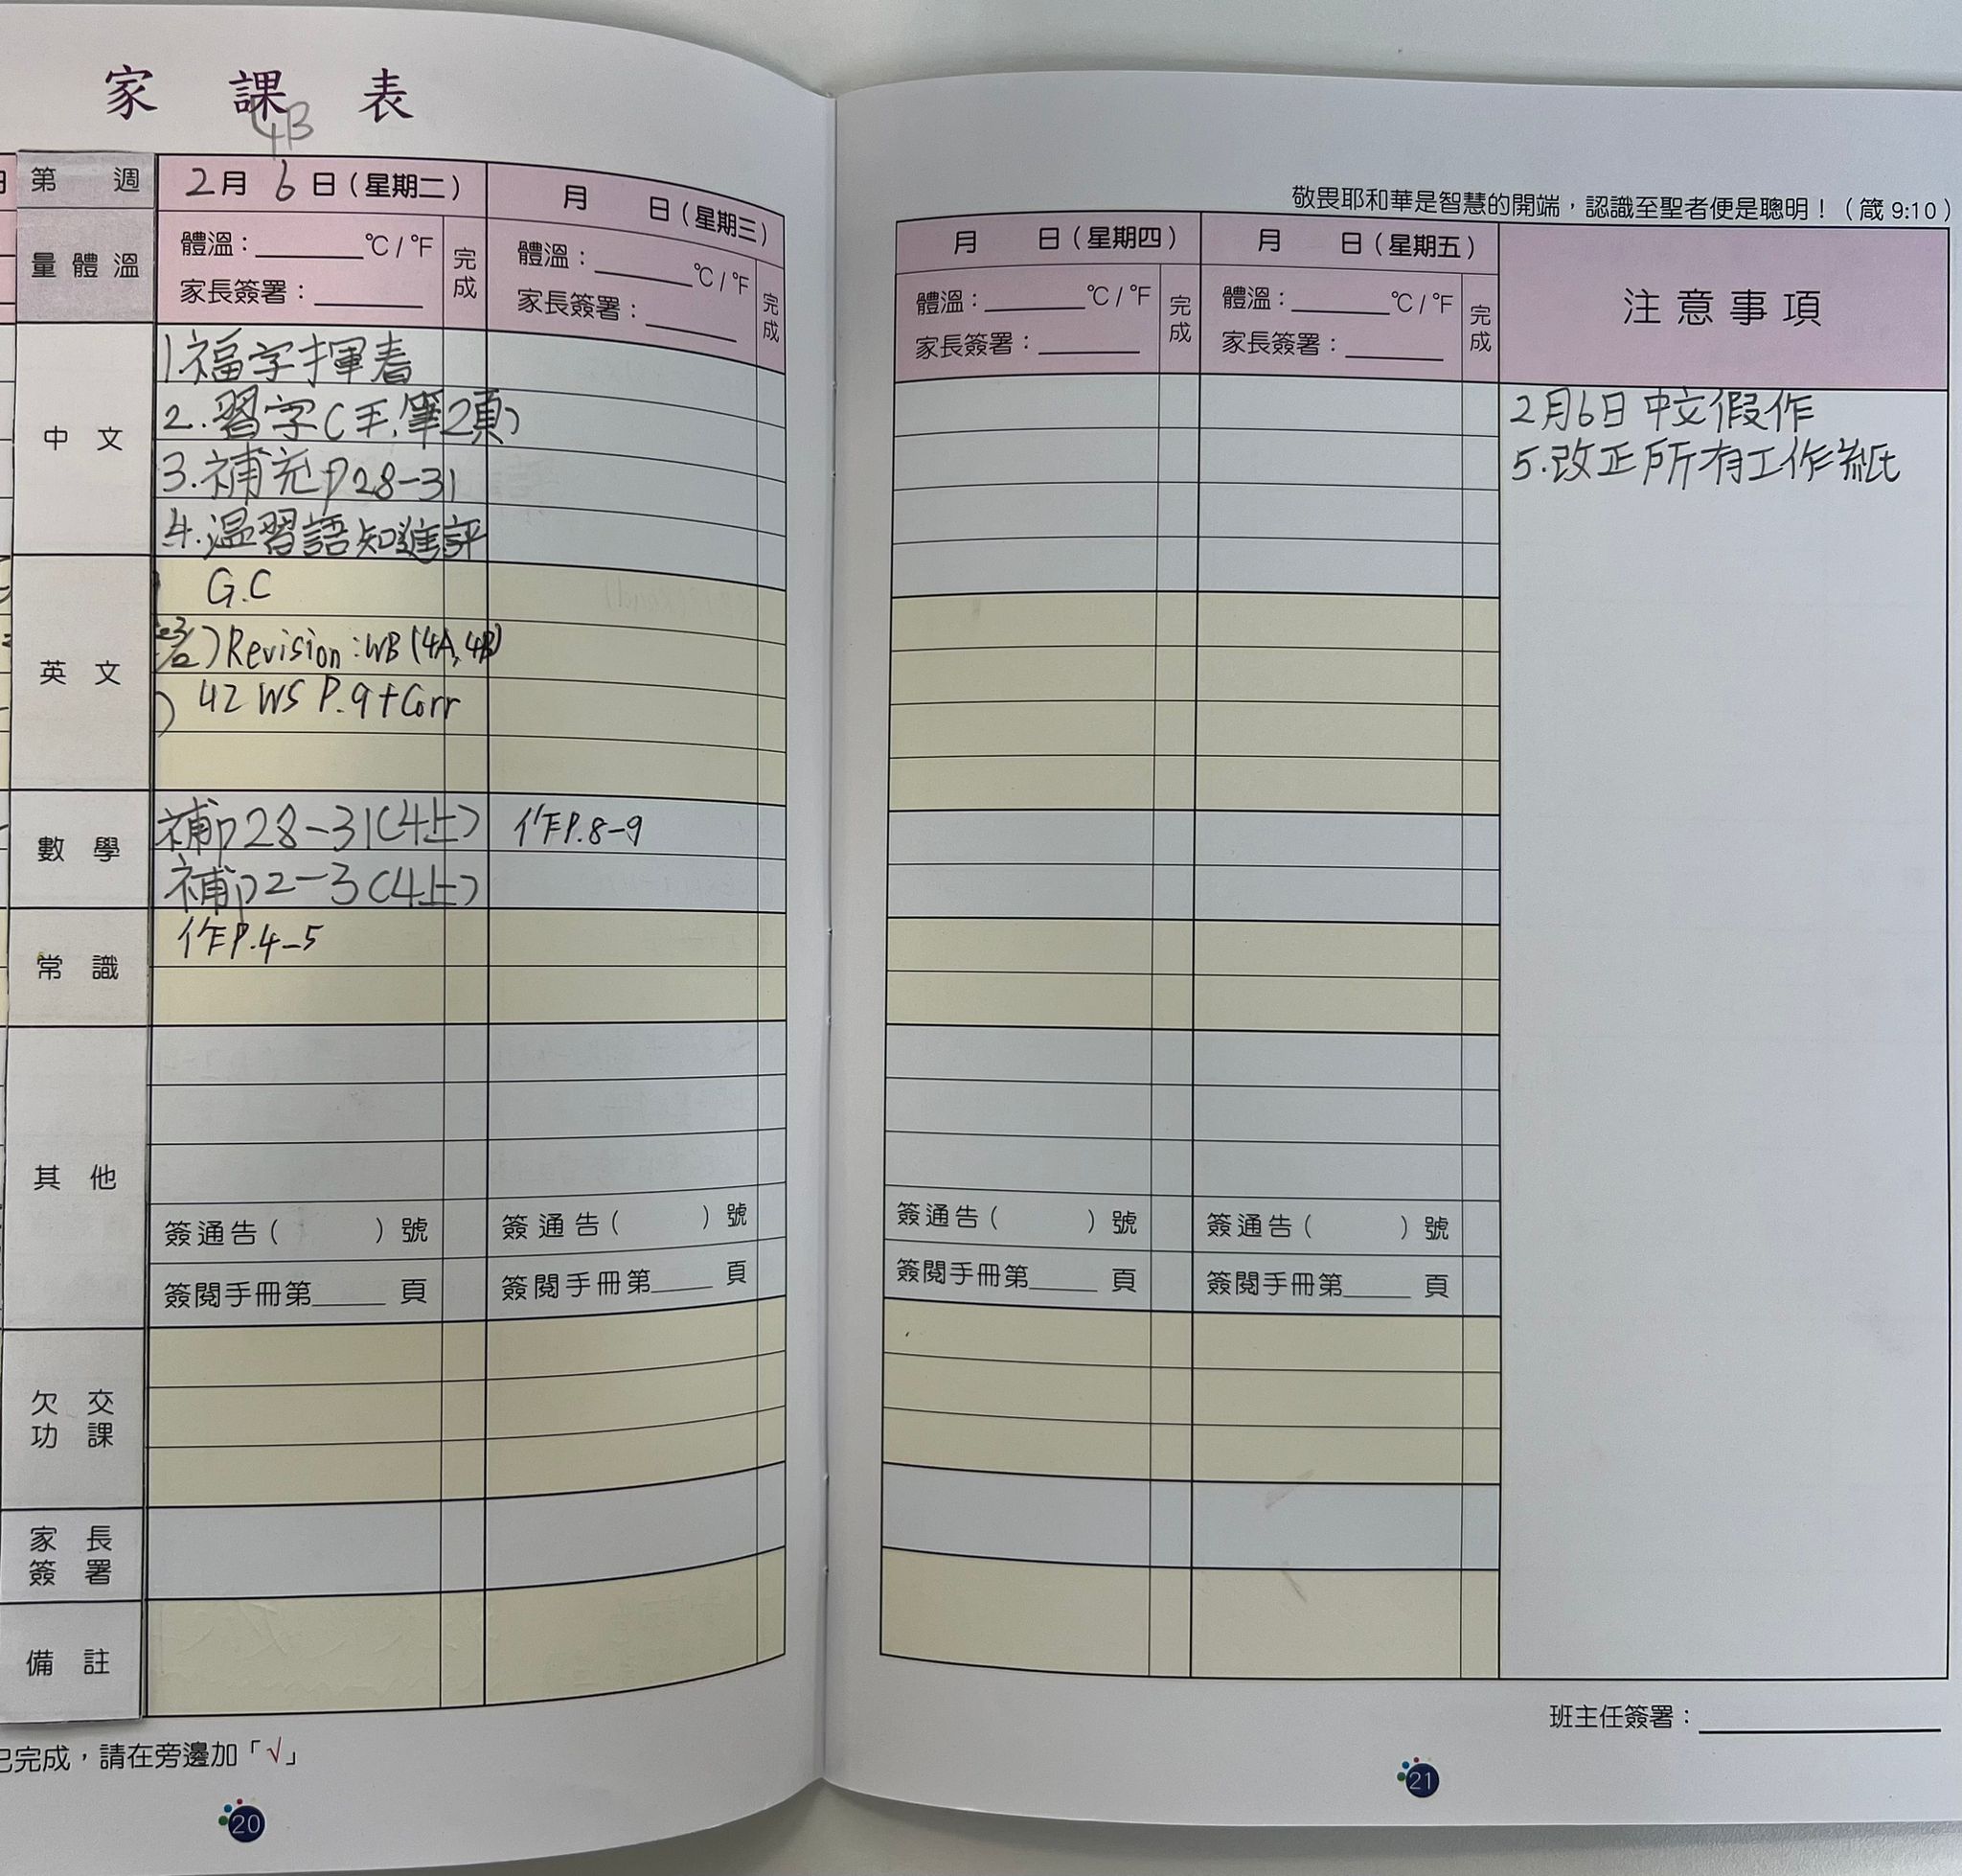 家課表
4B
第 週
2月6日(星期二)
月 日(星期三)
量體溫
體溫：______°C / °F
家長簽署：______
完成
體溫：______°C / °F
家長簽署：______
完成
中文
1.福字揮春
2.習字(毛筆2頁)
3.補充P28-31
4.温習語知進評
英文
G.C
Revision:WB(4A,4B)
42 WS P.9+Corr
數學
補P28-31(4上)
作P.8-9
補P2-3(4上)
常識
作P.4-5
其他
簽通告( )號
簽通告( )號
簽閱手冊第____頁
簽閱手冊第____頁
欠交功課
家長簽署
備註
已完成，請在旁邊加「√」
20
敬畏耶和華是智慧的開端，認識至聖者便是聰明！(箴 9:10)
月 日(星期四)
月 日(星期五)
注意事項
體溫：______°C / °F
家長簽署：______
完成
體溫：______°C / °F
家長簽署：______
完成
2月6日中文假作
5.改正所有工作紙
簽通告( )號
簽通告( )號
簽閱手冊第____頁
簽閱手冊第____頁
班主任簽署：____________
21